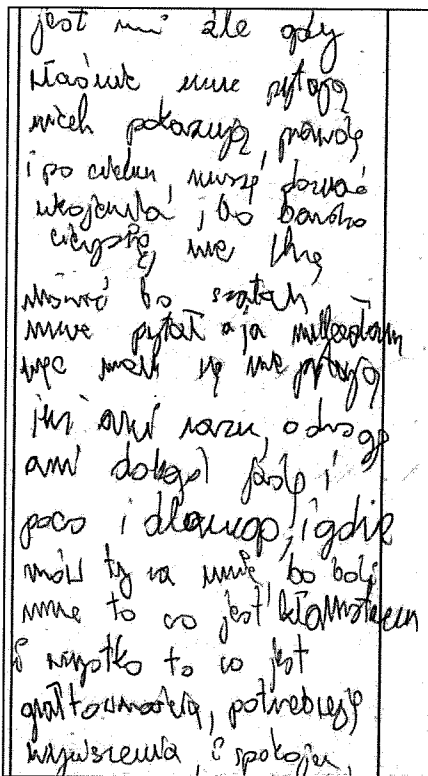 jest mi źle gdy
właśnie mnie pytają
niech pokazują, prawdę
i po cichu, muszę doznać
ukojenia, bo bardzo
cierpię, nie chcę
mówić bo
mnie pytał a ja milczałam
więc niech się nie pytają
już ani razu, o drogę
ani dokąd jadę i
poco i dlaczego, i gdzie
mów ty za mnie bo boli
mnie to co jest kłamstwem
i wszystko to co jest
gwałtownością, potrzebuję
wyciszenia, i spokoju,